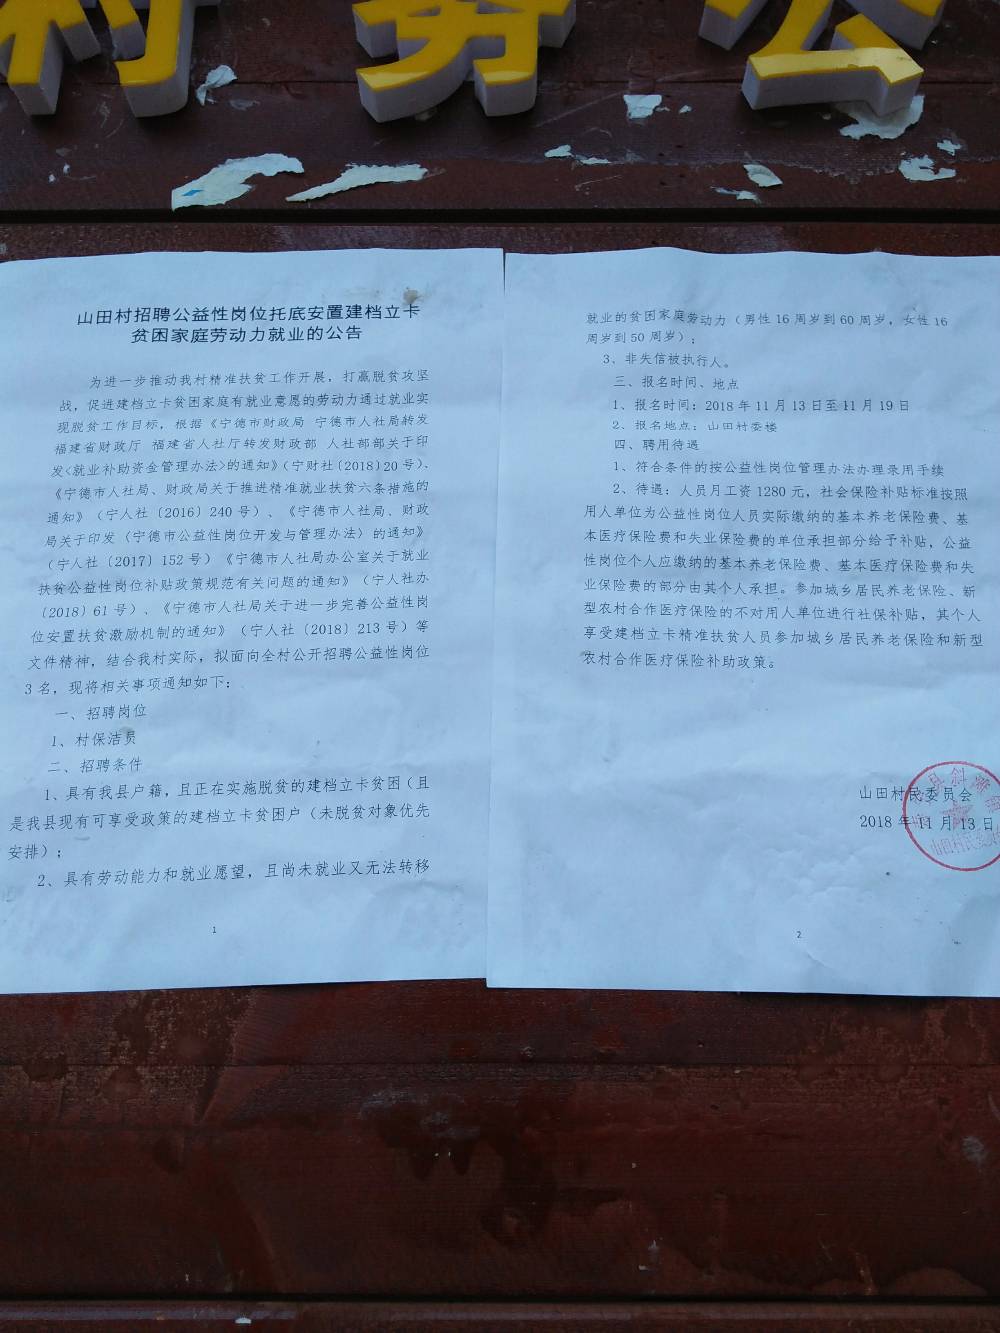 村务公
山田村招聘公益性岗位托底安置建档立卡
贫困家庭劳动力就业的公告
为进一步推动我村精准扶贫工作开展，打赢脱贫攻坚
战，促进建档立卡贫困家庭有就业意愿的劳动力通过就业实
现脱贫工作目标，根据《宁德市财政局 宁德市人社局转发
福建省财政厅 福建省人社厅转发财政部 人社部部关于印
发<就业补助资金管理办法>的通知》（宁财社〔2018〕20号）、
《宁德市人社局、财政局关于推进精准就业扶贫六条措施的
通知》（宁人社〔2016〕240号）、《宁德市人社局、财政
局关于印发〈宁德市公益性岗位开发与管理办法〉的通知》
（宁人社〔2017〕152号）《宁德市人社局办公室关于就业
扶贫公益性岗位补贴政策规范有关问题的通知》（宁人社办
〔2018〕61号）、《宁德市人社局关于进一步完善公益性岗
位安置扶贫激励机制的通知》（宁人社〔2018〕213号）等
文件精神，结合我村实际，拟面向全村公开招聘公益性岗位
3名，现将相关事项通知如下：
一、招聘岗位
1、村保洁员
二、招聘条件
1、具有我县户籍，且正在实施脱贫的建档立卡贫困（且
是我县现有可享受政策的建档立卡贫困户（未脱贫对象优先
安排）；
2、具有劳动能力和就业愿望，且尚未就业又无法转移
1
就业的贫困家庭劳动力（男性16周岁到60周岁，女性16
周岁到50周岁）；
3、非失信被执行人。
三、报名时间、地点
1、报名时间：2018年11月13日至11月19日
2、报名地点：山田村委楼
四、聘用待遇
1、符合条件的按公益性岗位管理办法办理录用手续
2、待遇：人员月工资1280元，社会保险补贴标准按照
用人单位为公益性岗位人员实际缴纳的基本养老保险费、基
本医疗保险费和失业保险费的单位承担部分给予补贴，公益
性岗位个人应缴纳的基本养老保险费、基本医疗保险费和失
业保险费的部分由其个人承担。参加城乡居民养老保险、新
型农村合作医疗保险的不对用人单位进行社保补贴，其个人
享受建档立卡精准扶贫人员参加城乡居民养老保险和新型
农村合作医疗保险补助政策。
山田村民委员会
2018年11月13日
2